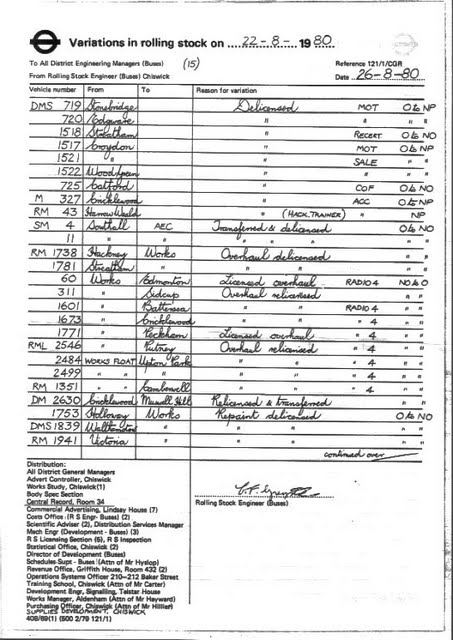 Variations in rolling stock on 22-8- 1980
To All District Engineering Managers (Buses) (15) Reference 121/1/CGR
From Rolling Stock Engineer (Buses) Chiswick Date 26-8-80
Vehicle number From To Reason for variation
DMS 719 Stonebridge Delicensed MOT O to NP
720 Edgware " " " "
1518 Streatham " RECERT. O to NO
1517 Croydon " MOT O to NP
1521 " " SALE " "
1522 Wood Green " " " "
725 Catford " COF O to NO
M 327 Cricklewood " ACC O to NP
RM 43 Harrow Weald " (HACK.TRAINER) " NP
SM 4 Southall AEC Transferred & delicensed O to NO
11 " " " " "
RM 1738 Hackney Works Overhaul delicensed " "
1781 Streatham " " " "
60 Works Edmonton Licensed overhaul RADIO 4 NO to O
311 " Sidcup Overhaul relicensed " "
1601 " Battersea " RADIO 4 " "
1673 " Cricklewood " " 4 " "
1771 " Peckham Licensed overhaul " 4 " "
RML 2546 " Putney Overhaul relicensed " 4 " "
2484 WORKS FLOAT Upton Park " " 4 " "
2499 " " " " " 4 " "
RM 1351 " " Camberwell " " 4 " "
DM 2630 Cricklewood Muswell Hill Relicensed & transferred " "
1753 Holloway Works Repaint delicensed O to NO
DMS 1839 Walthamstow " " " "
RM 1941 Victoria " " " "
continued over
Distribution:
All District General Managers
Advert Controller, Chiswick
Works Study, Chiswick(1)
Body Spec Section
Central Record, Room 34
Commercial Advertising, Lindsey House (7)
Costs Office (R S Engr- Buses) (2)
Rolling Stock Engineer (Buses)
Scientific Adviser (2), Distribution Services Manager
Mech Engr (Development - Buses) (3)
R S Licensing Section (5), R S Inspection
Statistical Office, Chiswick (2)
Director of Development (Buses)
Schedules Supt - Buses (Attn of Mr Hyslop)
Revenue Office, Griffith House, Room 432 (2)
Operations Systems Officer 210-212 Baker Street
Training School, Chiswick (Attn of Mr Carter)
Development Engr, Signalling, Telstar House
Works Manager, Aldenham (Attn of Mr Hayward)
Purchasing Officer, Chiswick (Attn of Mr Hillier)
SUPPLIES DEVELOPMENT, CHISWICK
408/89(1) (500 2/79 121/1)